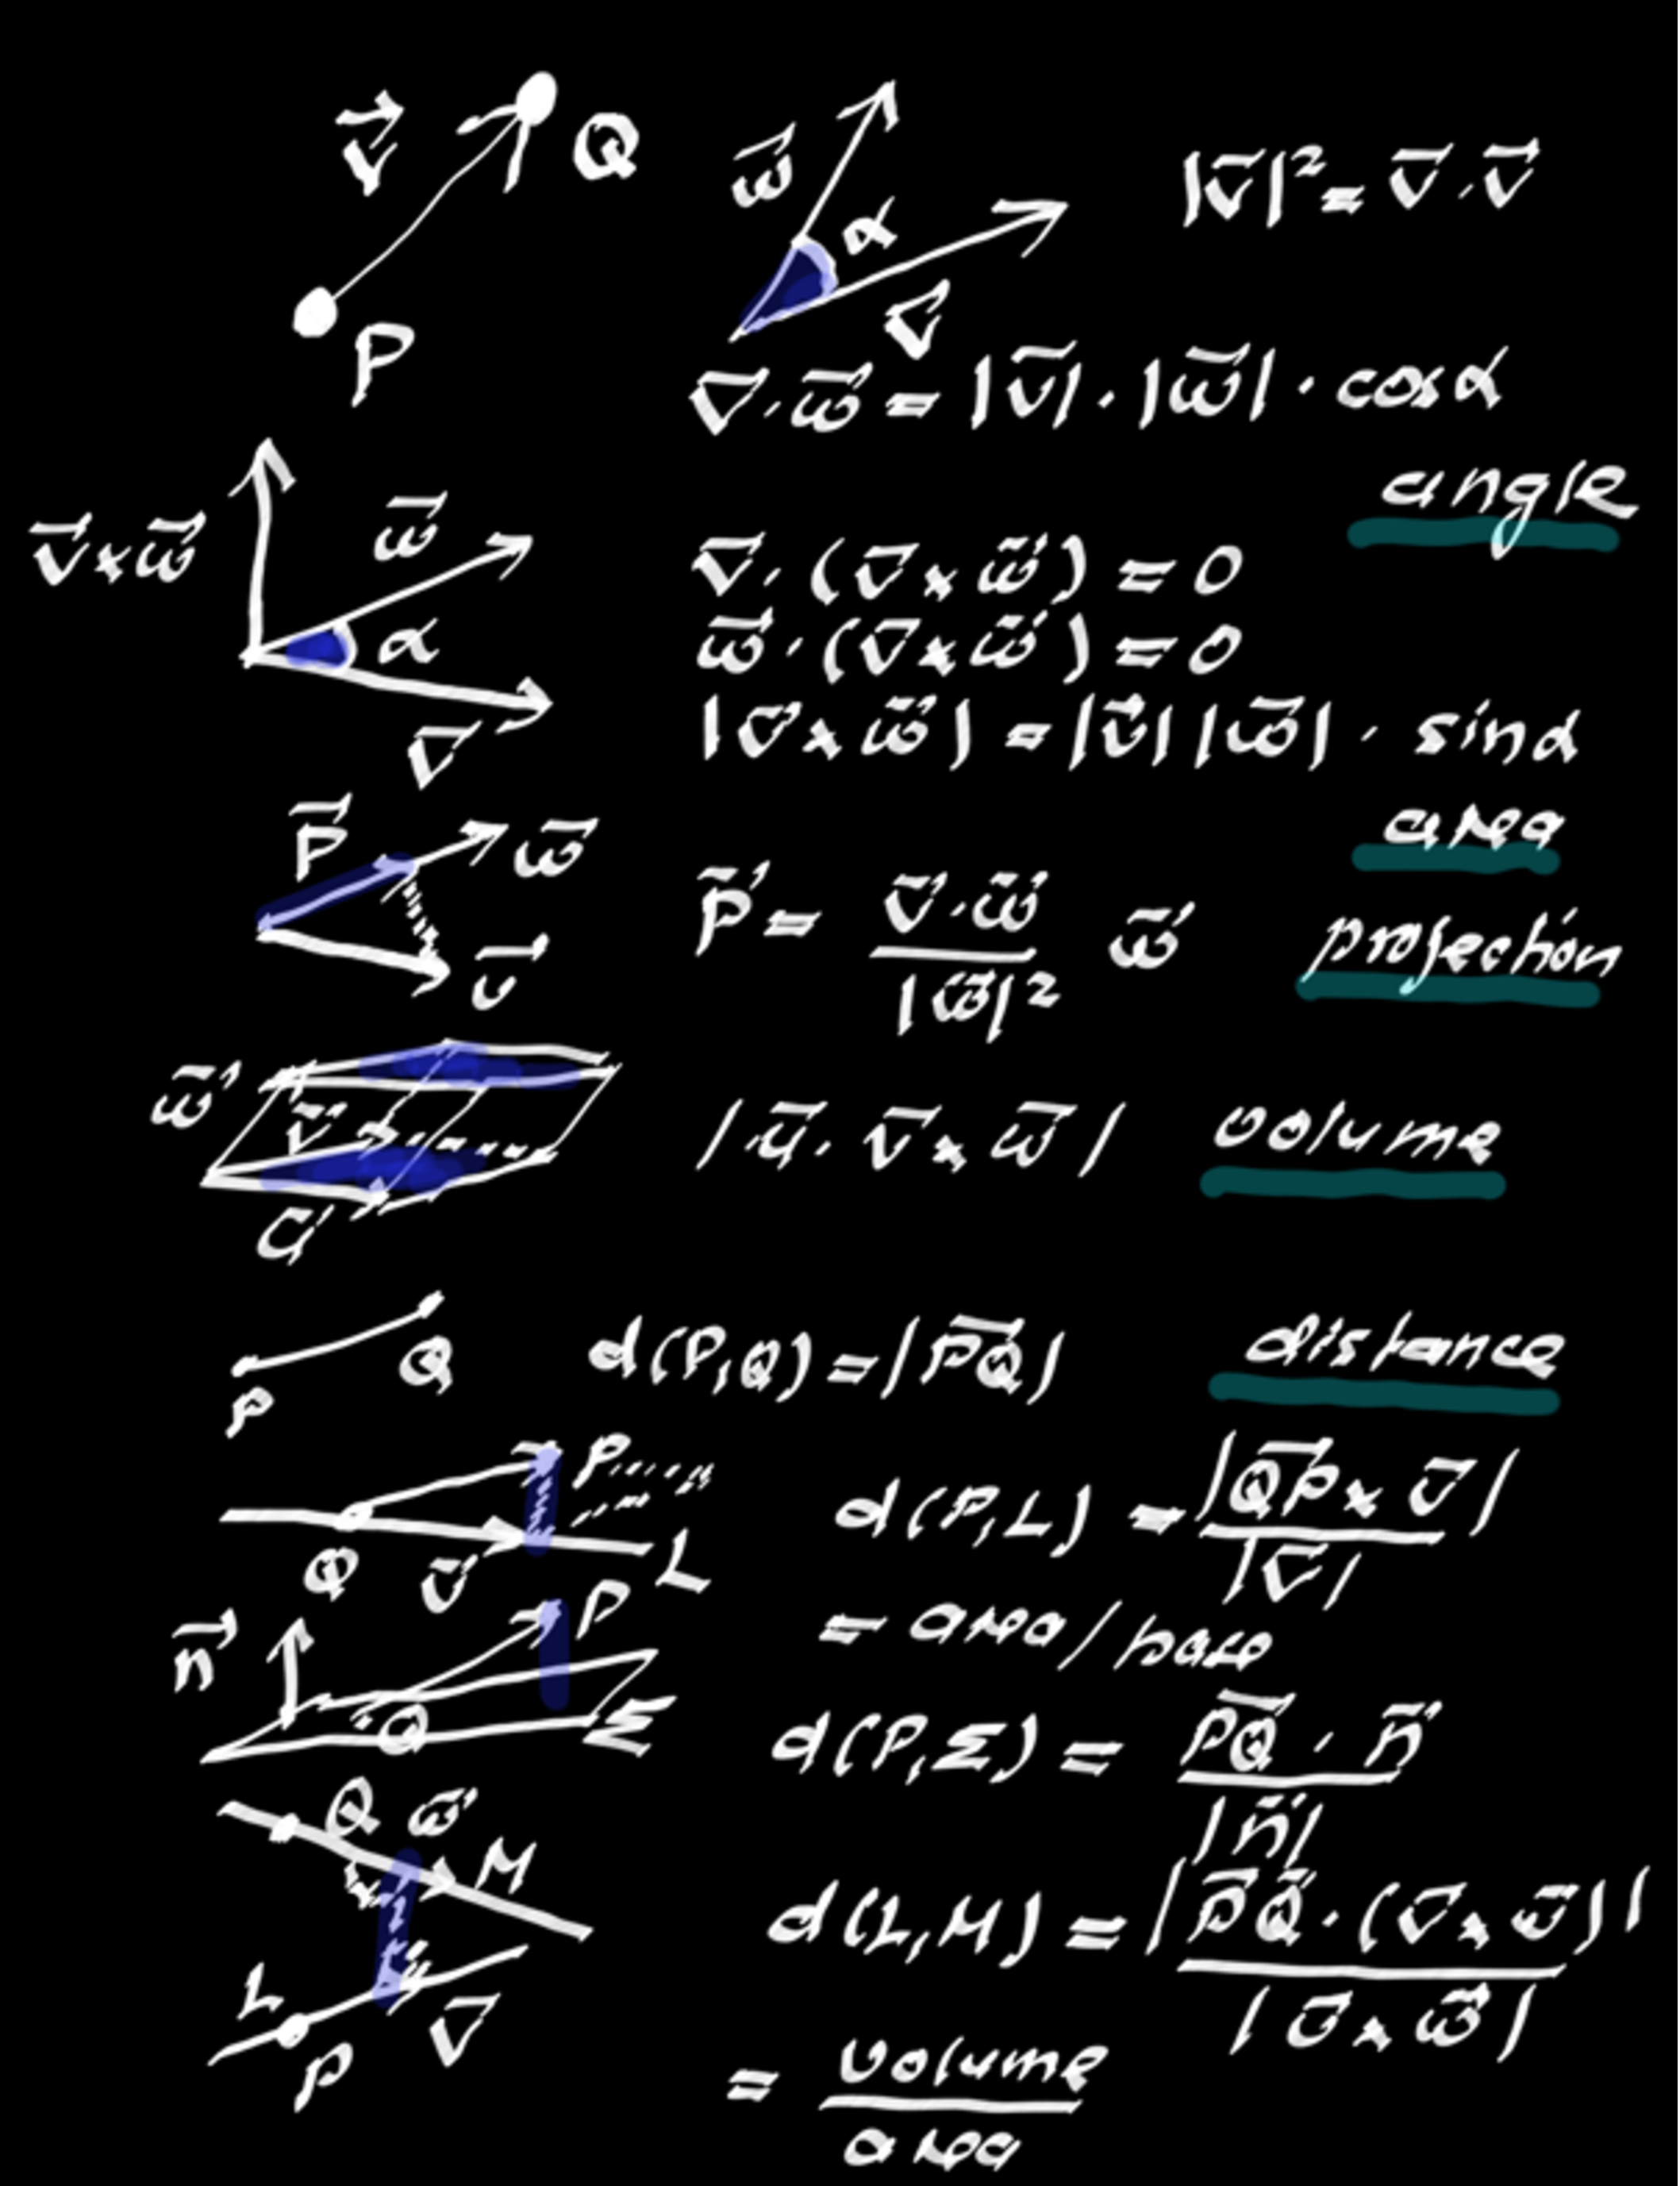 v⃗ Q w⃗ α |v⃗|² = v⃗ · v⃗
P v⃗
v⃗ · w⃗ = |v⃗| · |w⃗| · cos α
angle
v⃗ × w⃗ w⃗ α v⃗
v⃗ · (v⃗ × w⃗) = 0
w⃗ · (v⃗ × w⃗) = 0
|v⃗ × w⃗| = |v⃗| |w⃗| · sin α
area
P⃗ w⃗ v⃗ P⃗ = (v⃗ · w⃗)/|w⃗|² w⃗ projection
w⃗ v⃗ u⃗ |u⃗ · v⃗ × w⃗| volume
P Q d(P,Q) = |P⃗Q| distance
P Q v⃗ L d(P,L) = |Q⃗P × v⃗| / |v⃗|
= area/base
n⃗ P Q Σ d(P,Σ) = P⃗Q · n⃗ / |n⃗|
Q w⃗ M L P v⃗ d(L,M) = |P⃗Q · (v⃗ × w⃗)| / |v⃗ × w⃗|
= volume
area